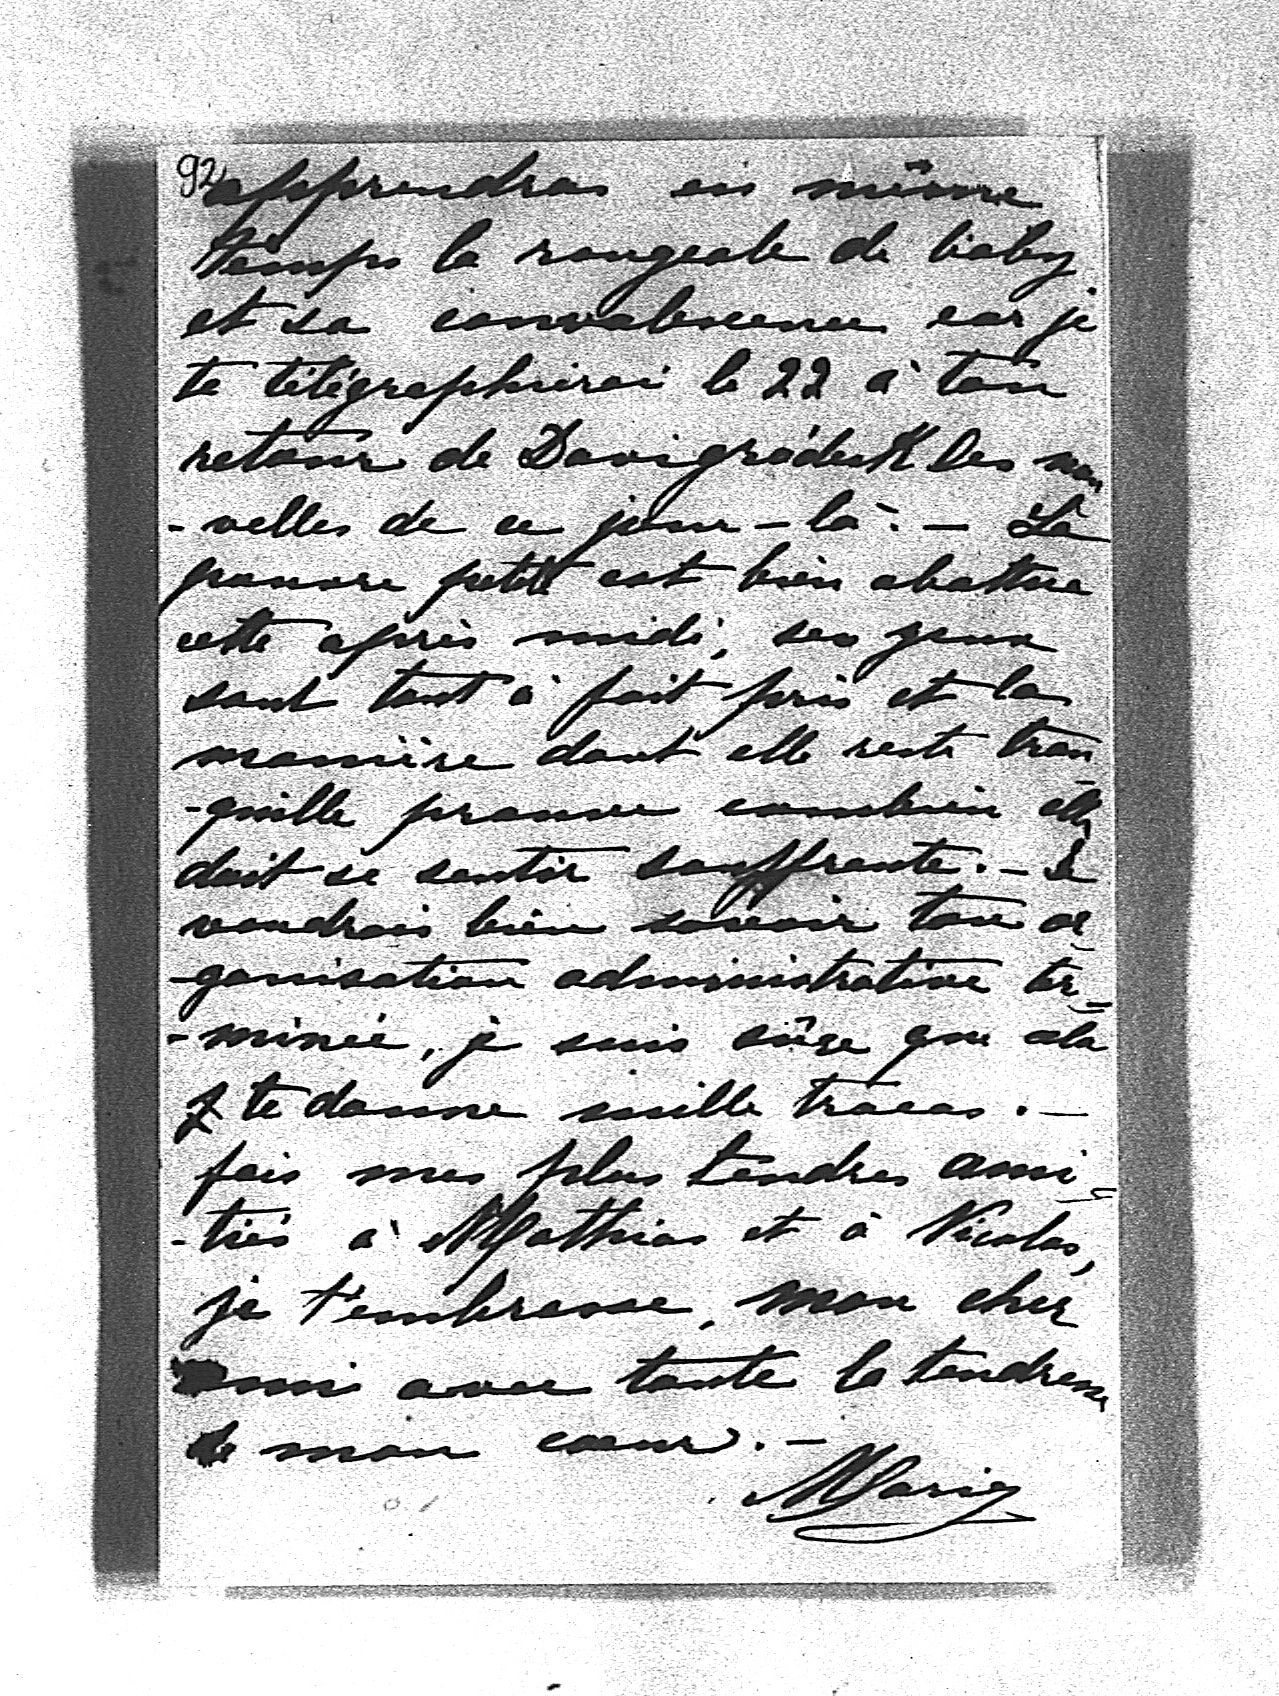 92
apprendras en même
temps la rougeole de baby
et sa convalescence car je
te télégraphierai le 22 à ton
retour de Davigródeck les nou
-velles de ce jour-là. - La
pauvre petite est bien abattue
cette après midi, ses yeux
sont tout à fait pris et la
manière dont elle reste tran
-quille prouve combien elle
doit se sentir souffrante. - Je
voudrais bien savoir ton or
-ganisation administrative ter-
-minée, je suis sûre que cela
te donne mille tracas. -
fais mes plus tendres ami-
-tiés à Mathias et à Nicolas,
je t'embrasse, mon cher
ami avec toute la tendresse
de mon cœur. -
Marie